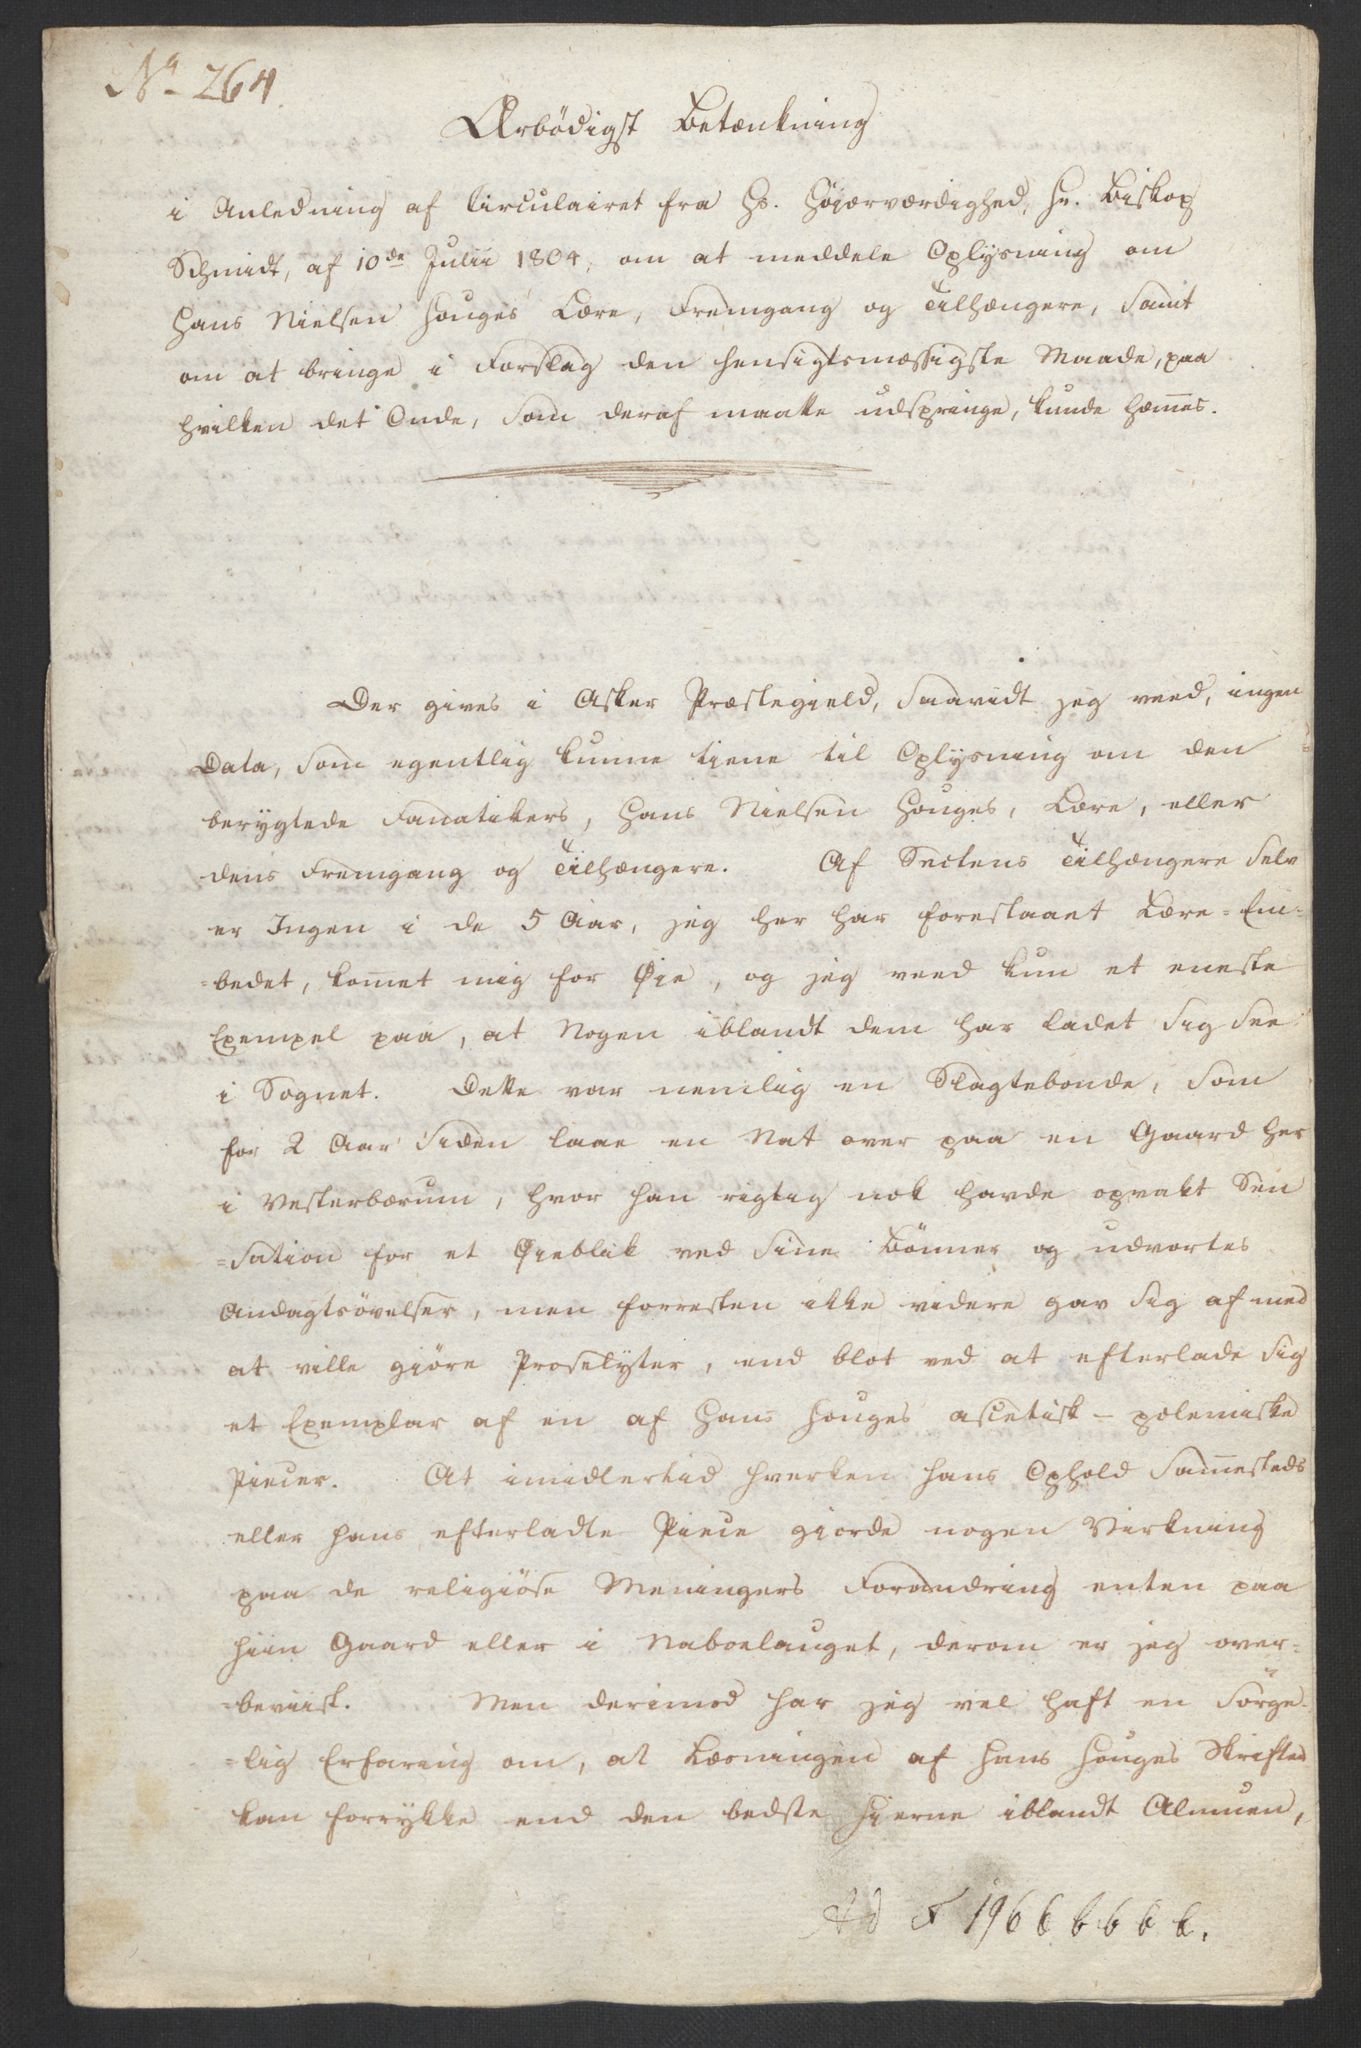 No 264.
Ærbödigst Betænkning
i Anledning af Circulairet fra Hs. Höiærværdighed, Hr. Biskop
Schmidt, af 10de Julii 1804, om at meddele Oplysning om
Hans Nielsen Houges Lære, Fremgang og Tilhængere, samt
om at bringe i Forslag den hensigtsmæssigste Maade, paa
hvilken det Onde, som deraf maatte udspringe, kunde hæmes.
Der gives i Asker Præstegield, saavidt jeg veed, ingen
Data, som egentlig kunne tiene til Oplysning om den
berygtede Fanatikers, Hans Nielsen Houges, Lære, eller
dens Fremgang og Tilhængere. Af Sectens Tilhængere selv
er Ingen i de 5 Aar, jeg her har forestaaet Lære-Em-
=bedet, komet mig for Øie, og jeg veed kun et eneste
Exempel paa, at Nogen iblandt dem har ladet sig see
i Sognet. Dette var nemlig en Slagtebonde, som
for 2 Aar siden laae en Nat over paa en Gaard her
i Vesterbærum, hvor han rigtig nok havde opvakt Sen
=sation for et Øieblik ved sine Bönner og udvortes
Andagtsövelser, men forresten ikke videre gav sig af med
at ville giöre Proselyter, end blot ved at efterlade sig
et Exemplar af en af Hans Houges ascetisk-polemiske
Piecer. At imidlertid hverken hans Ophold samesteds
eller hans efterladte Piece giorde nogen Virkning
paa de religiöse Meningers Forandring enten paa
hiin Gaard eller i Naboelauget, derom er jeg over-
=beviist. Men derimod har jeg vel haft en sörge-
=lig Erfaring om, at Læsningen af Hans Houges Skrifter
kan forrykke end den bedste Hierne iblandt Almuen,
Ad F 1966 b b b b.